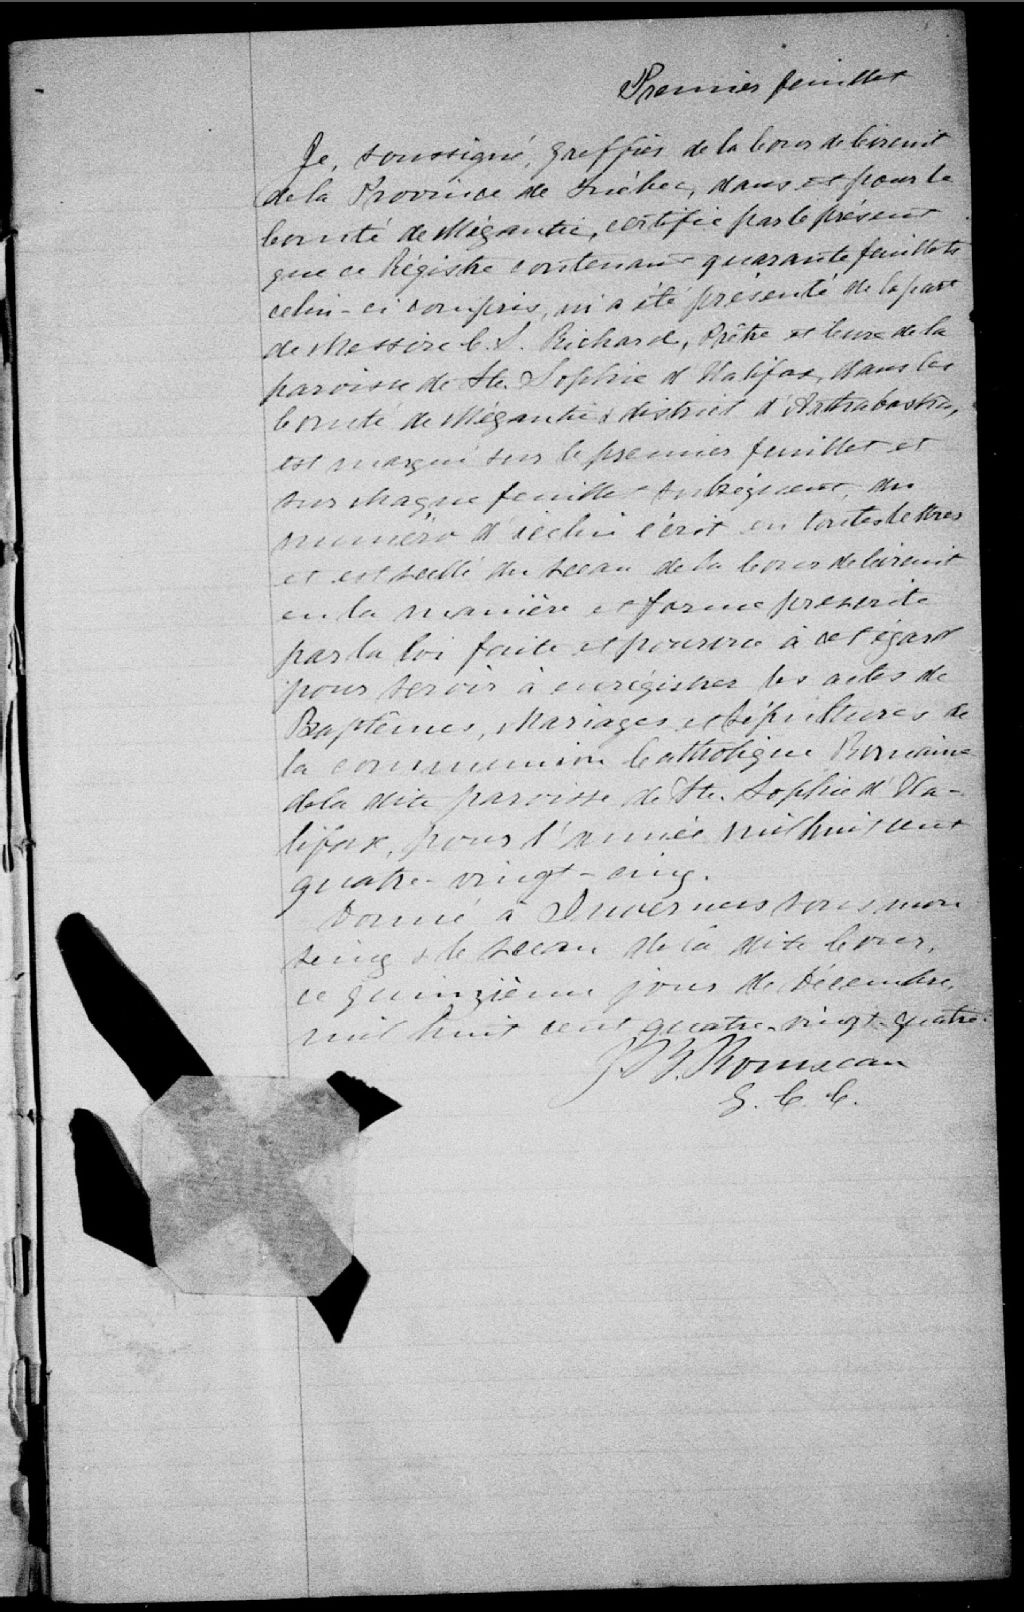 Premier feuillet
Je, soussigné, Greffier de la Cour de Circuit
de la Province de Québec, dans et pour le
Comté de Mégantic, certifie par le présent
que ce Régistre contenant quarante feuillets
celui-ci compris, m'a été présenté de la part
de Messire C. S. Richard, Prêtre et Curé de la
paroisse de Ste. Sophie d'Halifax, dans le
Comté de Mégantic & district d'Arthabaska,
est marqué sur le premier feuillet et
sur chaque feuillet subséquent, du
numéro d'icelui écrit en toutes lettres
et est scellé du sceau de la Cour de Circuit
en la manière et forme prescrite
par la loi faite et pourvue à cet égard
pour servir à enrégistrer les actes de
Baptêmes, Mariages et Sépultures de
la communion Catholique Romaine
de la dite paroisse de Ste. Sophie d'Ha-
lifax, pour l'année mil huit cent
quatre-vingt-cinq.
Donné à Inverness sous mon
seing & le sceau de la dite Cour,
ce quinzième jour de Décembre,
mil huit cent quatre-vingt-quatre.
G. C. C.